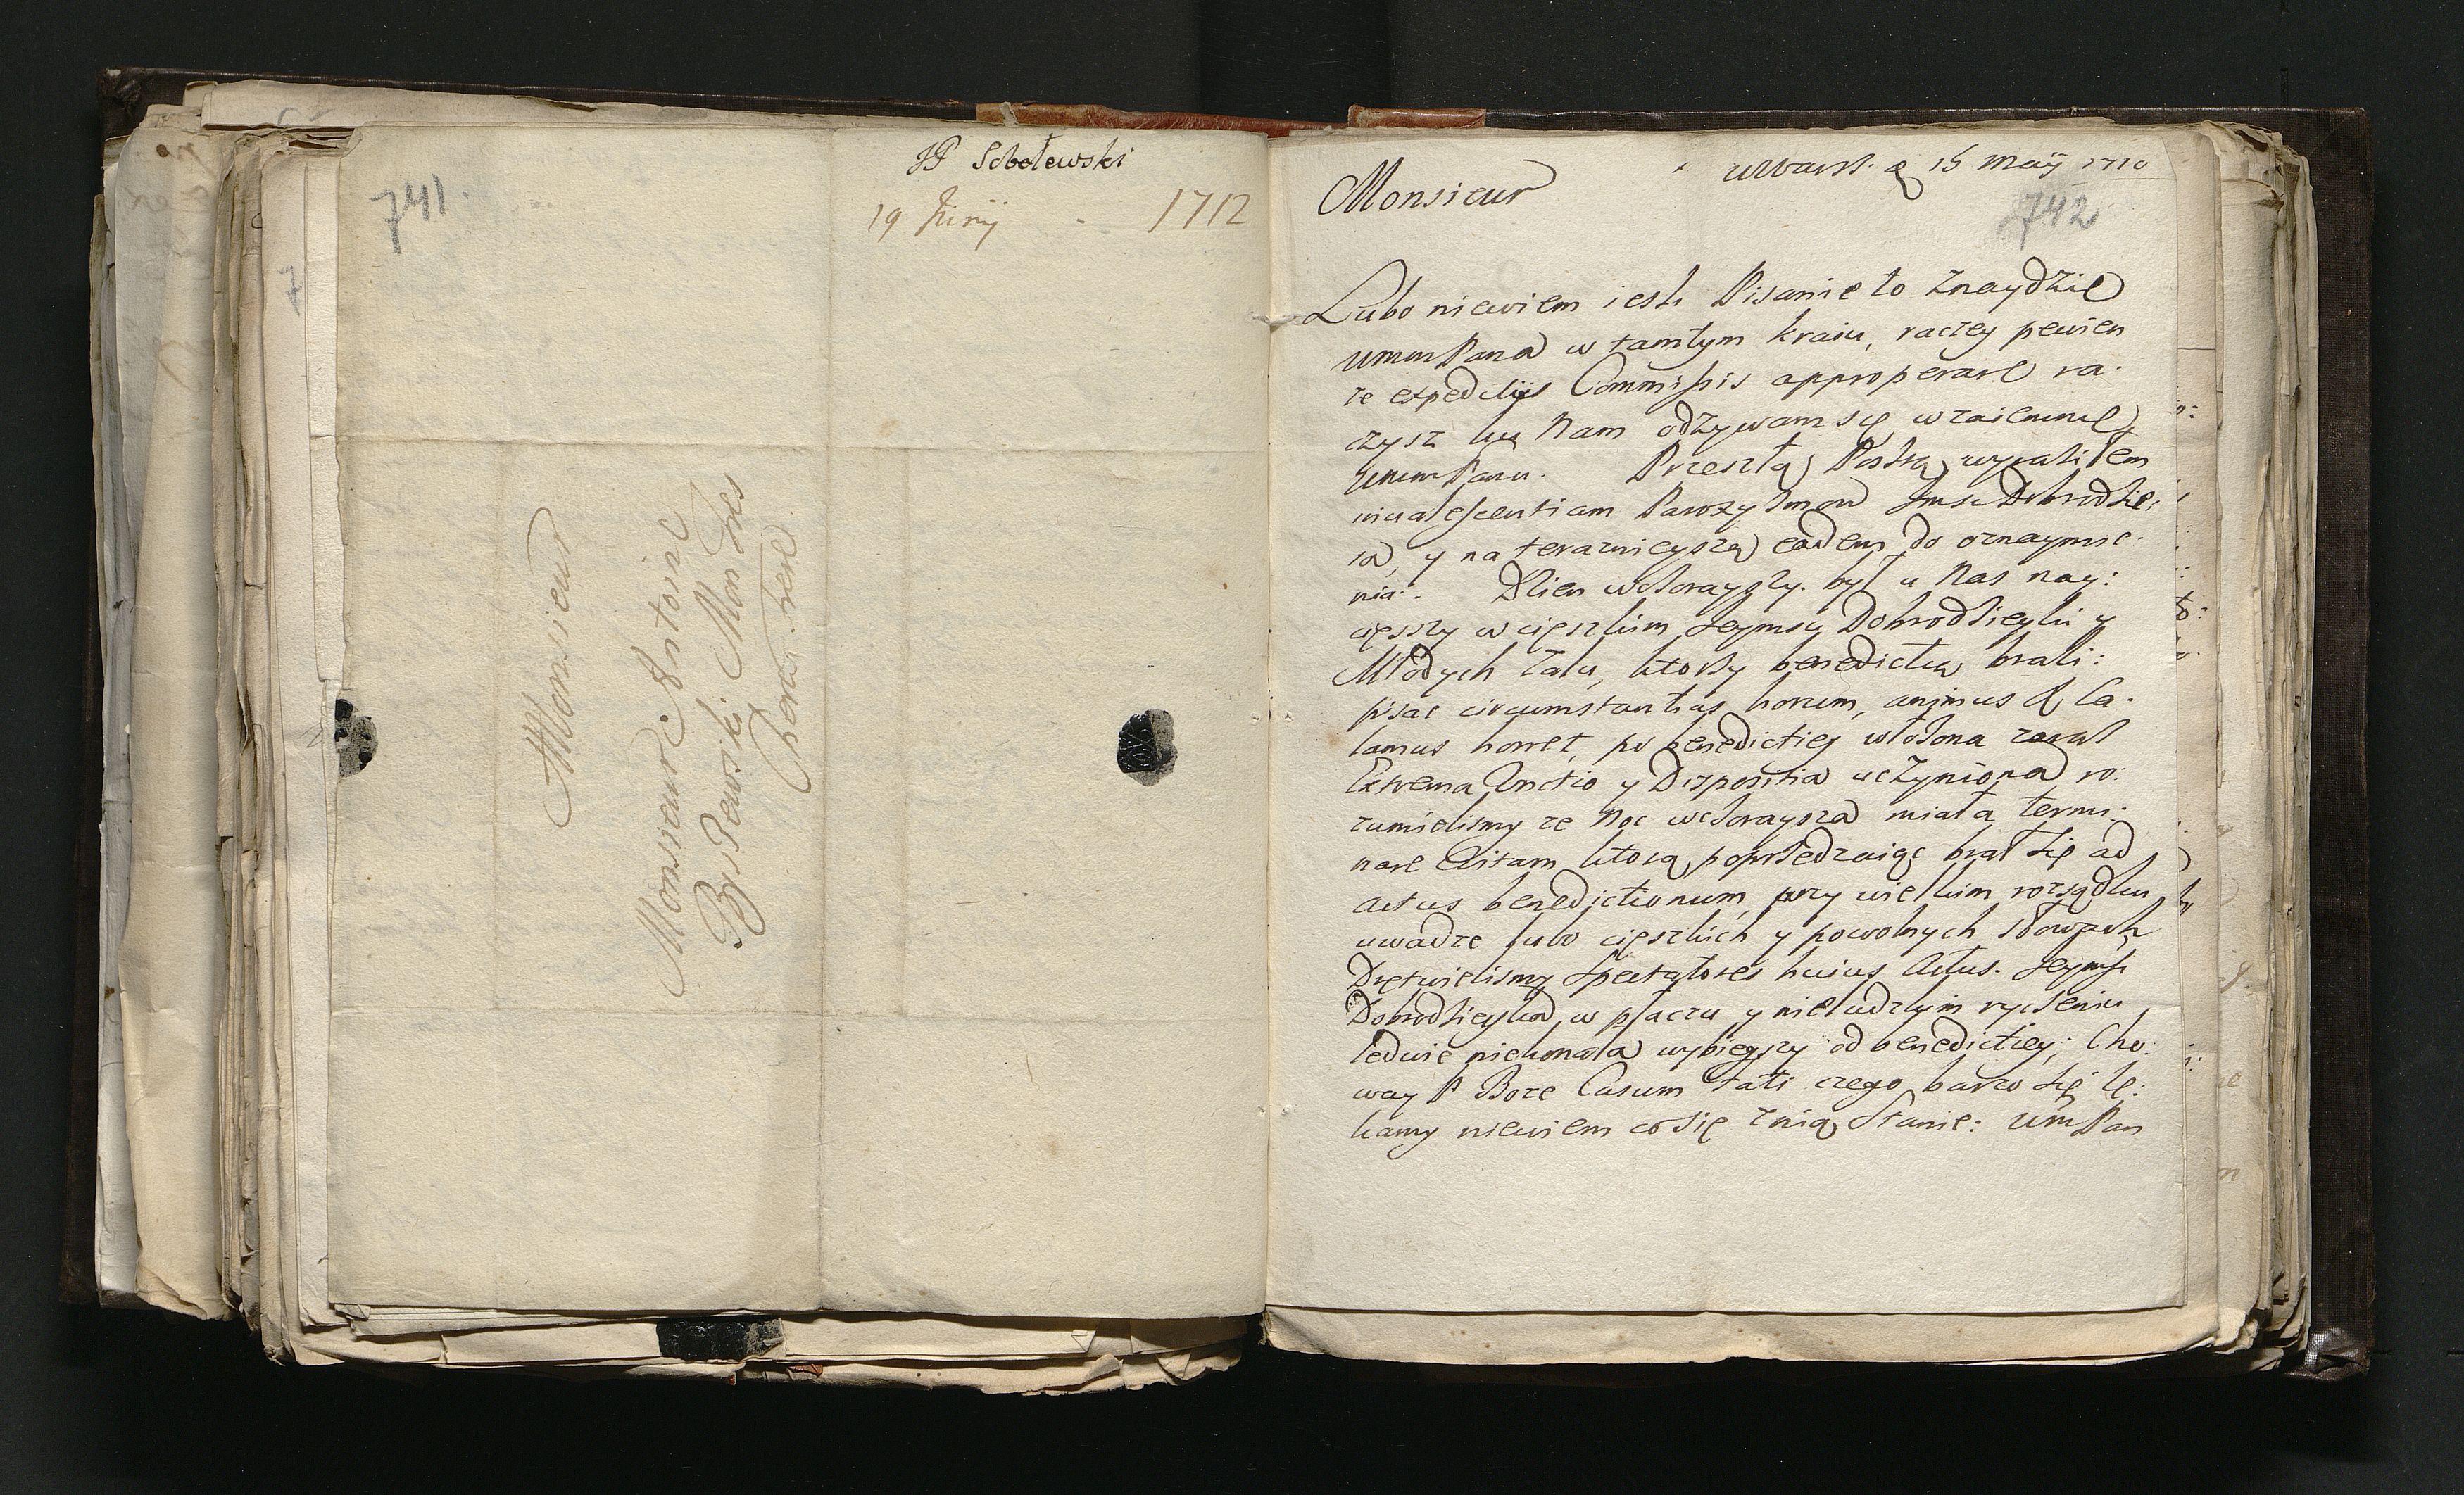 741.
JP Sobolewski
19 Junij - 1712
Monsieur
Monsieur Antoine
Bystewski. Mon tres
honoré frere
Monsieur
15 Maij 1710
742
Lubo niewiem iesli Pisanie to Znaydzie
wmm Pana w tamtym kraiu, raczey pewien
ze expeditijs Commissis approperare ra-
czysz ku Nam odzywam się wzaiemnie
wmm Panu. Przeszłą Posztą wyraziłem
Paroxyzmow Jmsc Dobrodzie:
ia, y na teraznieyszą eadem do oznaymie-
nia. Dzien wczorayszy był u Nas nay:
cięszszy w cięszkim Jeymsci Dobrodzieyki y
Młodych żalu, ktorzy benedictią brali:
pisac circumstantias horum, animus & Ca-
lamus horret, po benedictiey włożona zaraz
Extrema Unctio y Dispositia uczyniona ro-
zumielismy ze Noc wczoraysza miała termi-
nare Vitam, ktorą poprzedzaiąc brał się ad
actus benedictionum, przy wielkim rozsądku
uwadze lubo cięszkich y powolnych słowach
Drętwielismy Spectatores huius Actus. Jeymsc
Dobrodzieyka w płaczu y nieludzkim ryczeniu
ledwie nieskonała wybiegszy od benedictiey; Cho:
way P Boze Casum tati czego barzo się lę:
kamy niewiem co się znią Stanie: Wm Pan